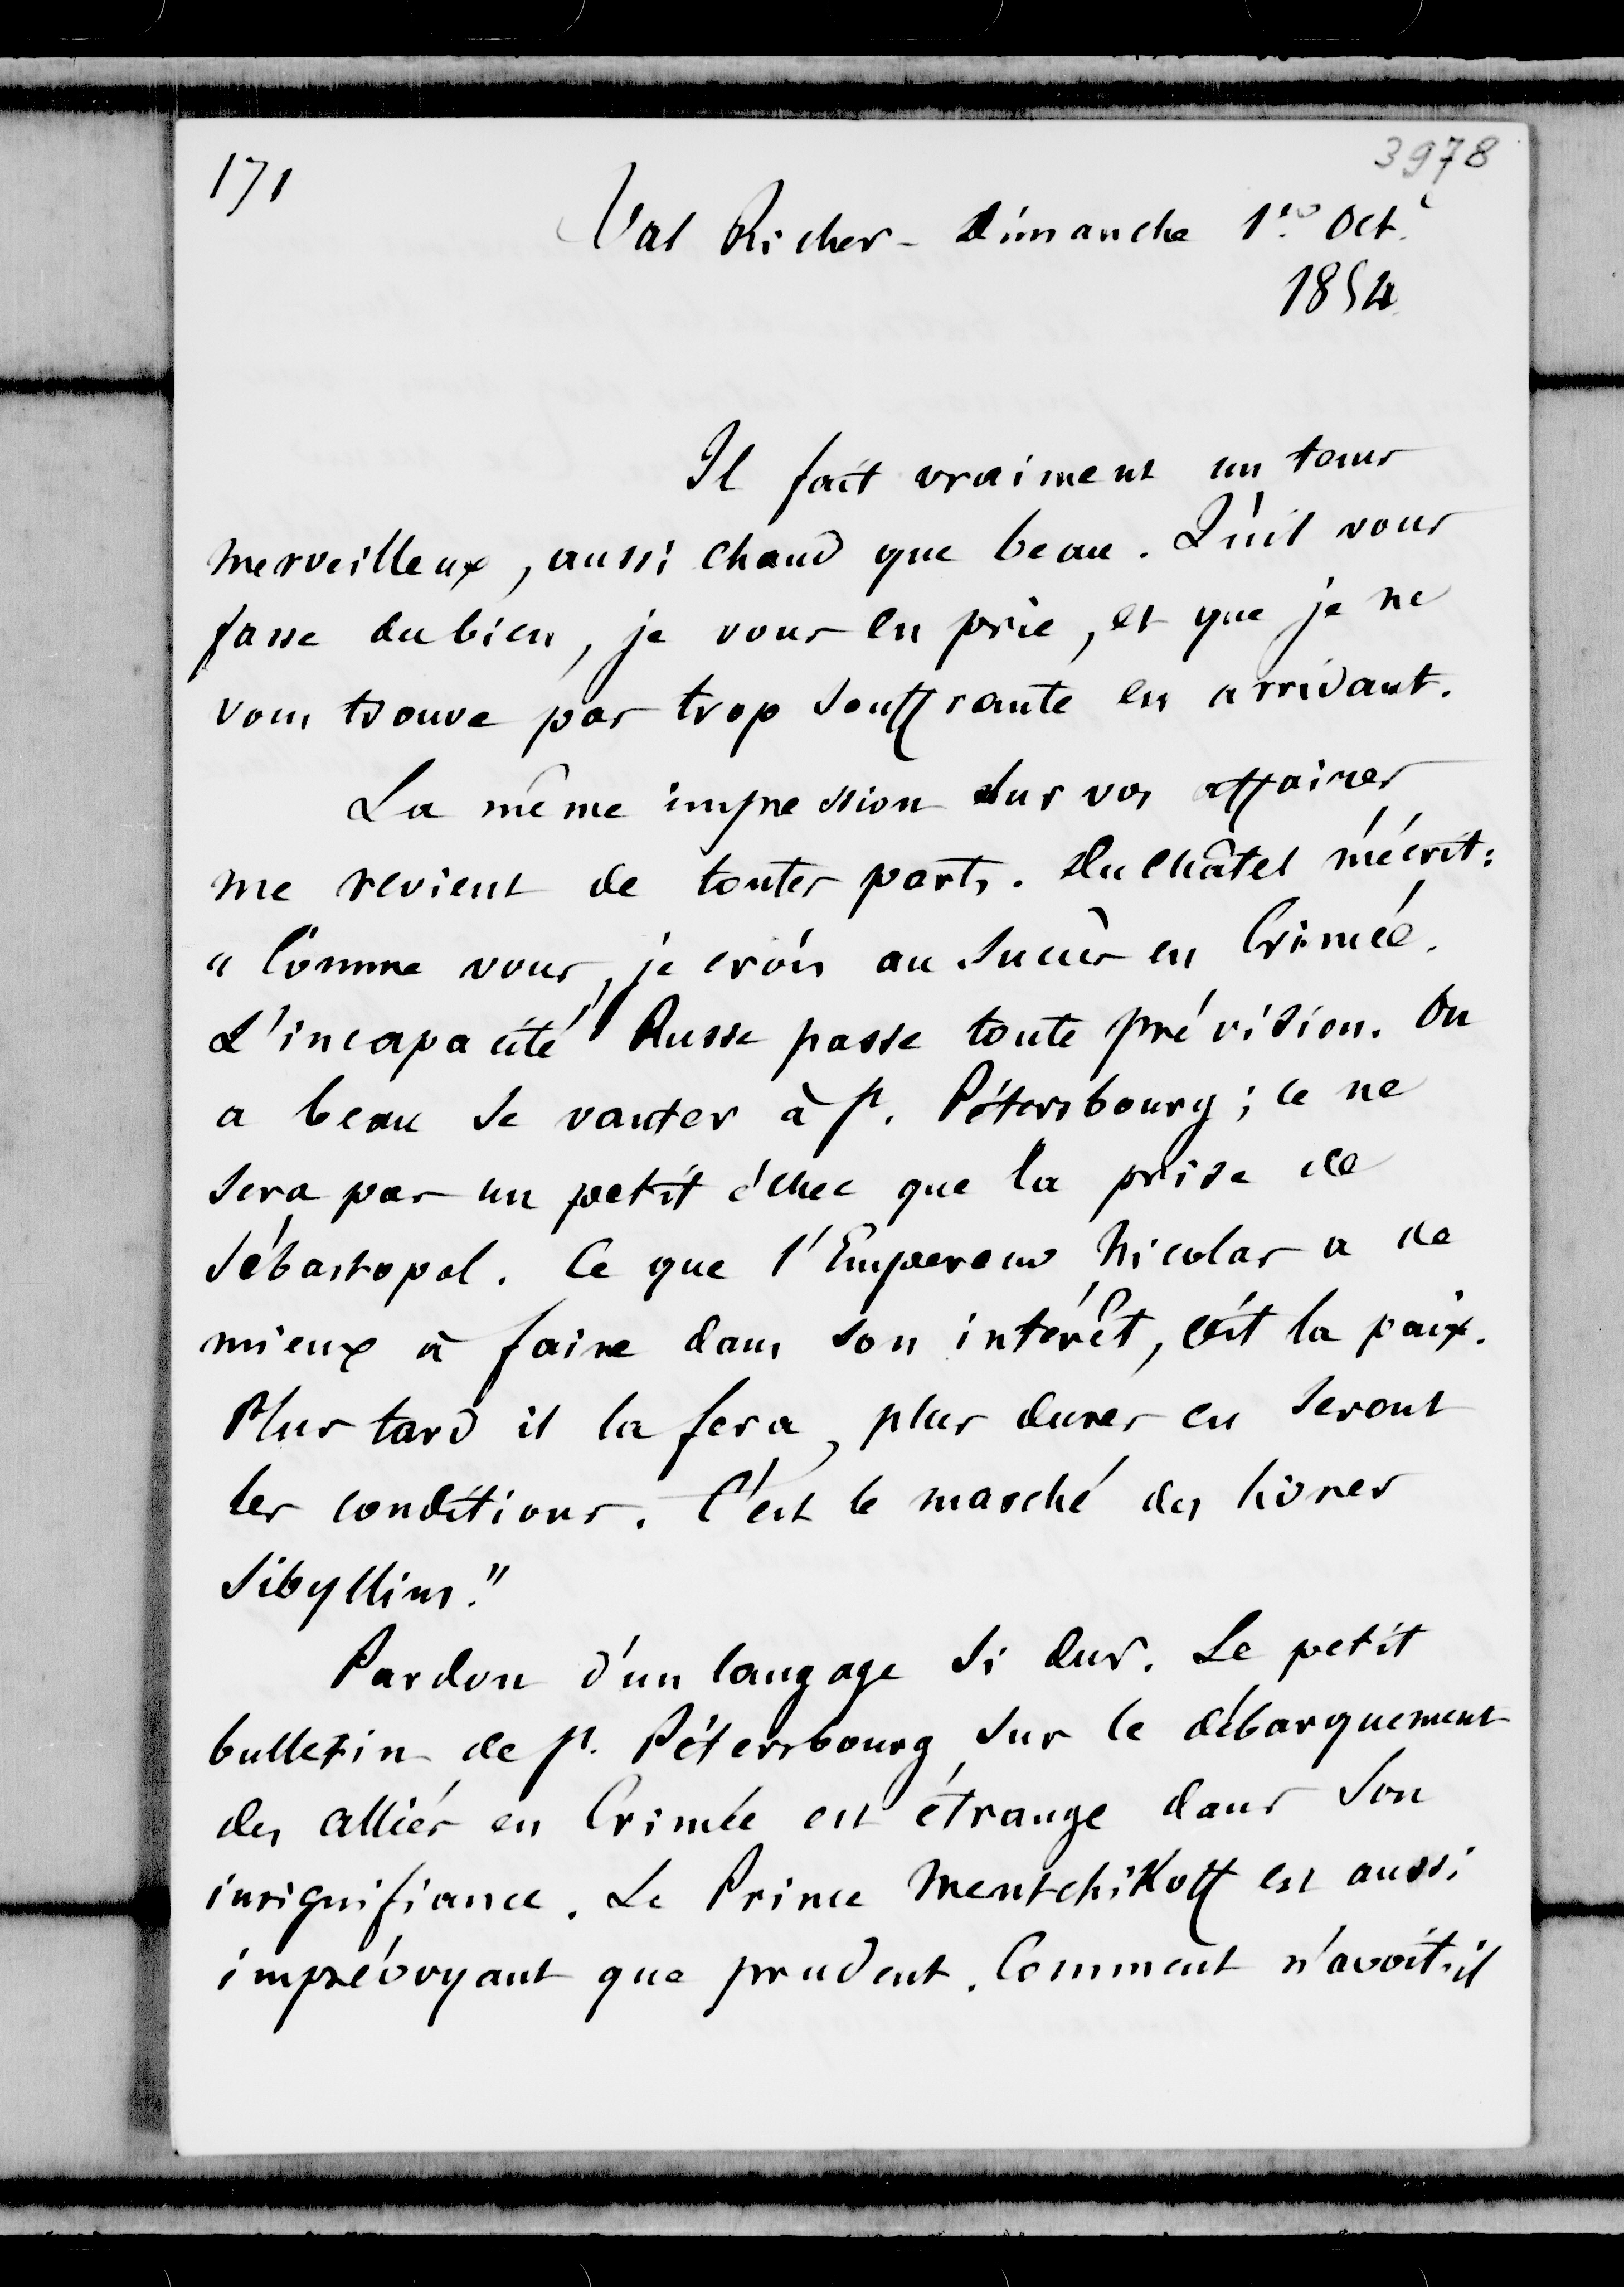 171
3978
Val Richer - Dimanche 1er Oct.
1854
Il fait vraiment un tems
merveilleux, aussi chaud que beau. Qu'il vous
fasse du bien, je vous en prie, et que je ne
vous trouve pas trop souffrante en arrivant.
La même impression sur vos affaires
me revient de toutes parts. Duchâtel m'écrit :
"Comme vous, je crois au succès en Crimée.
L'incapacité Russe passe toute prévision. On
a beau se vanter à St. Pétersbourg ; ce ne
sera pas un petit échec que la prise de
Sébastopol. Ce que l'Empereur Nicolas a de
mieux à faire dans son intérêt, c'est la paix.
Plus tard il la fera, plus dures en seront
les conditions. C'est le marché des livres
Sibyllins."
Pardon d'un langage si dur. Le petit
bulletin de St. Pétersbourg sur le débarquement
des alliés en Crimée est étrange dans son
insignifiance. Le Prince Mentchikoff est aussi
imprévoyant que prudent. Comment n'avoit-il